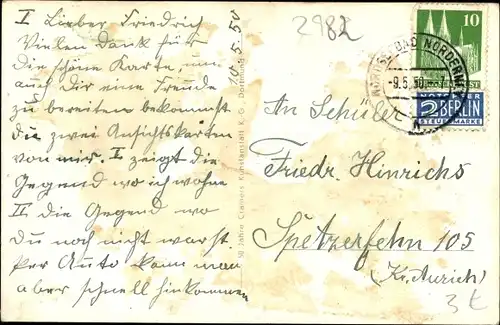 I Lieber Friedrich
Vielen Dank für
die schöne Karte, um
auch dir eine Freude
zu bereiten bekommst
du zwei Ansichtskarten
von mir. I zeigt die
Gegend wo ich wohne
II die Gegend wo
du noch nicht warst.
Per Auto kann man
aber schnell hinkommen
10.5.50
50 Jahre Cramers Kunstanstalt K.-G. Dortmund
2982
10
NORDSEEBAD NORDERNEY
-9.5.50
NOTOPFER
2 BERLIN
STEUERMARKE
An Schüler
Friedr. Hinrichs
Spetzerfehn 105
(Kr. Aurich)
3 €